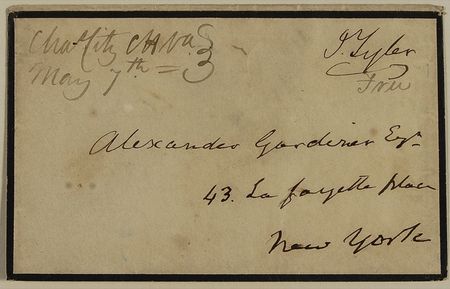 Chas City CH Va
May 7th =
J. Tyler
Free
Alexander Gardiner Esqr
43. La fayette place
New York